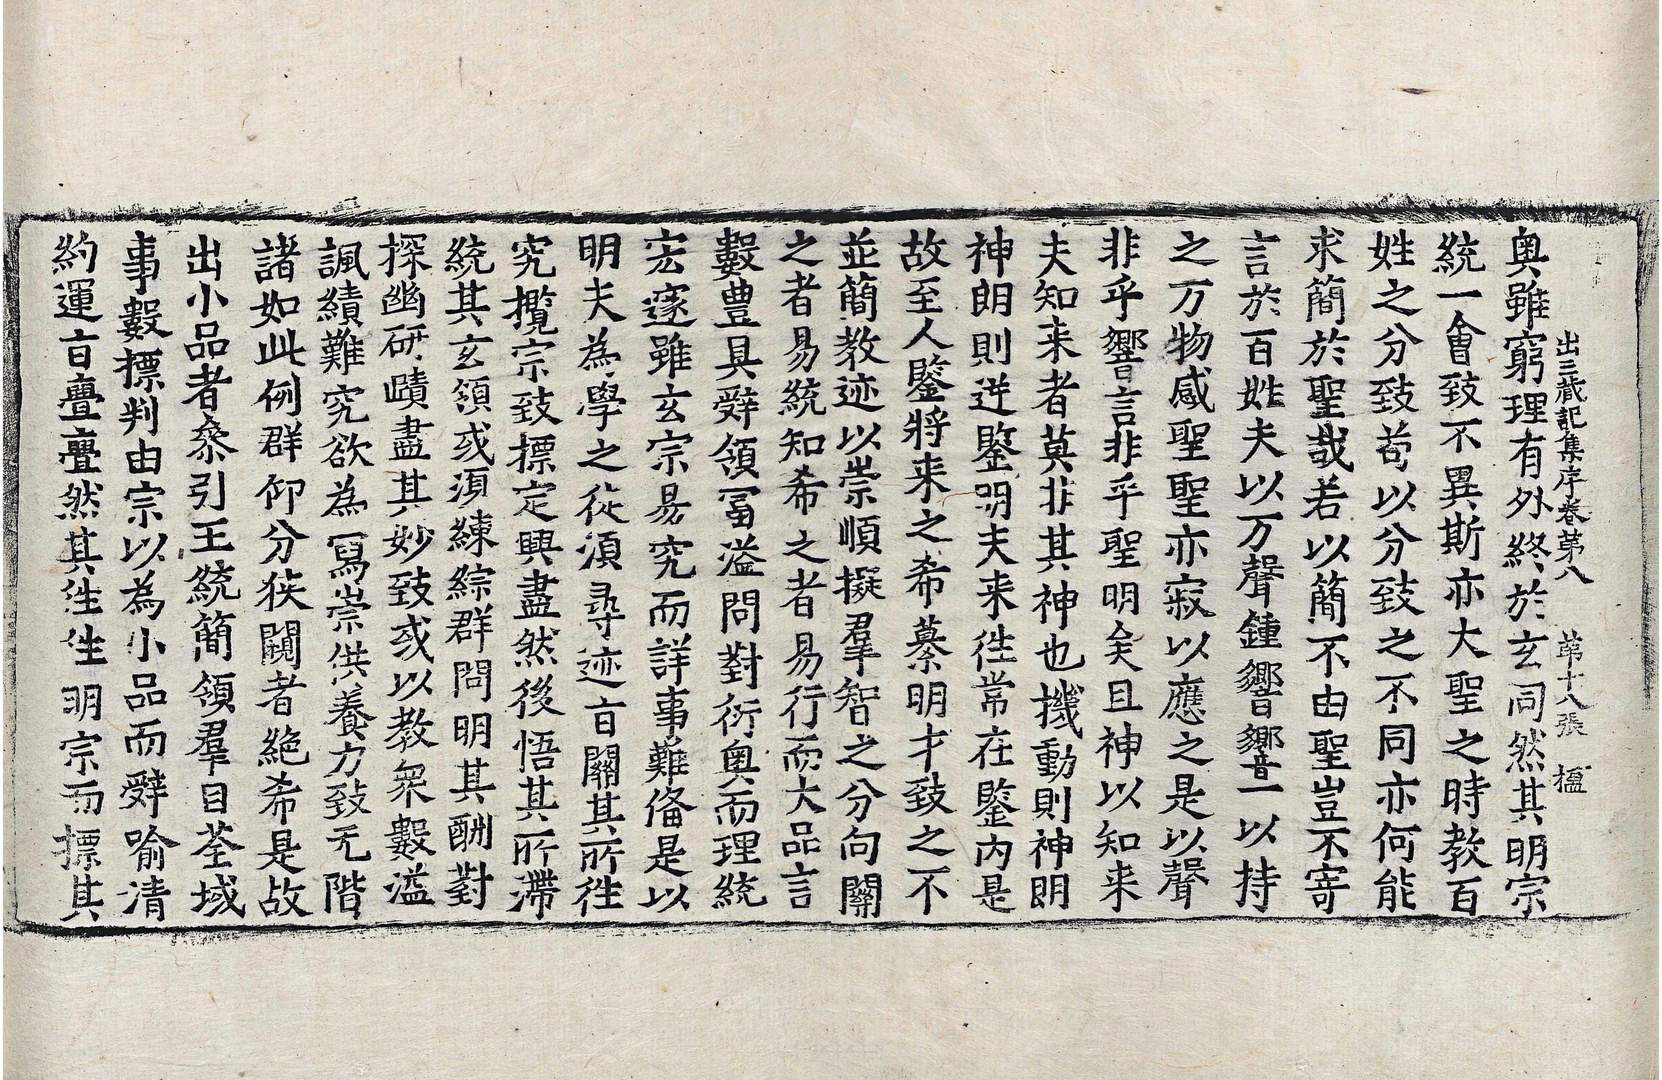 出三藏記集序卷第八　第十八張　楹
奥雖窮理有外終於玄同然其明宗
統一會致不異斯亦大聖之時教百
姓之分致苟以分致之不同亦何能
求簡於聖哉若以簡不由聖豈不寄
言於百姓夫以万聲鍾響響一以持
之万物感聖聖亦寂以應之是以聲
非乎響言非乎聖明矣且神以知来
夫知来者莫非其神也機動則神朗
神朗則逆鑒明夫来往常在鑒内是
故至人鑒將来之希纂明才致之不
並簡教迹以崇順擬羣智之分向關
之者易統知希之者易行而大品言
數豊具辝領冨溢問對衍奥而理統
宏邃雖玄宗易究而詳事難俻是以
明夫為學之徒湏尋迹旨關其所往
究攬宗致摽定興盡然後悟其所滯
統其玄領或湏練綜群問明其酬對
探幽研賾盡其妙致或以教衆數溢
諷績難究欲為寫崇供養力致无階
諸如此例群仰分狹闚者絶希是故
出小品者叅引王統簡領羣目荃域
事數摽判由宗以為小品而辝喻清
約運旨亹亹然其往往明宗而摽其